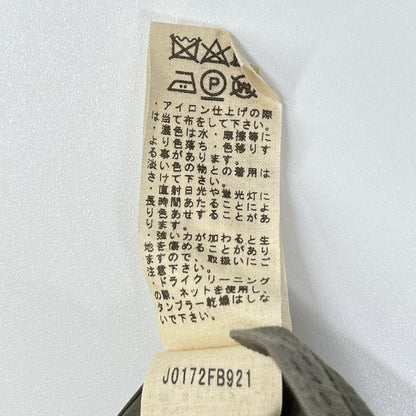 P
・アイロン仕上げの際
は当て布をして下さい。
・濃色は水・摩擦等に
より色落ち・色移りす
る事があります。
淡い色の物との着用は
さけて下さい。
・直射日光や蛍光灯に
長時間あたることによ
り色あせすることがあ
ります。
・強い力が加わると生
地を傷めることがあり
ますので、取扱いにご
注意下さい。
・ドライクリーニング
の際、ネットを使用し、
タンブラー乾燥はしな
いで下さい。
J0172FB921